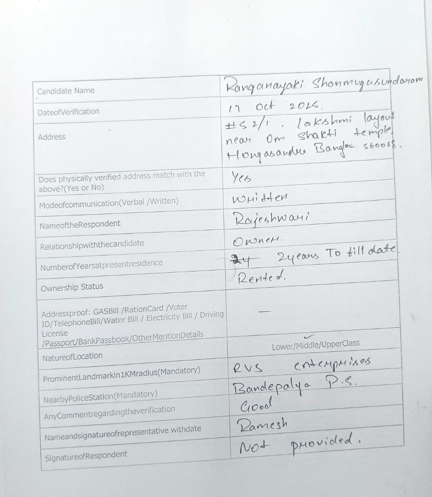 Candidate Name Ranganayaki Shanmugasundaram
DateofVerification 17 Oct
Address #52/1, Lakshmi layout
near Om Shakti temple
Hongasandra 560068.
Does physically verified address match with the
above?(Yes or No) Yes
Modeofcommunication(Verbal /Written) Written
NameoftheRespondent Rajeshwari
Relationshipwiththecandidate Owner.
NumberofYearsatpresentresidence 2years To till date
Ownership Status Rented.
Addressproof: GASBill /RationCard /Voter
ID/TelephoneBill/Water Bill / Electricity Bill / Driving
License
/Passport/BankPassbook/OtherMentionDetails —
NatureofLocation Lower/Middle/UpperClass
ProminentLandmarkin1KMradius(Mandatory) RVS enterprises
NearbyPoliceStation(Mandatory) Bandepalya P.S.
AnyCommentregardingtheverification Good
Nameandsignatureofrepresentative withdate Ramesh
SignatureofRespondent Not provided.